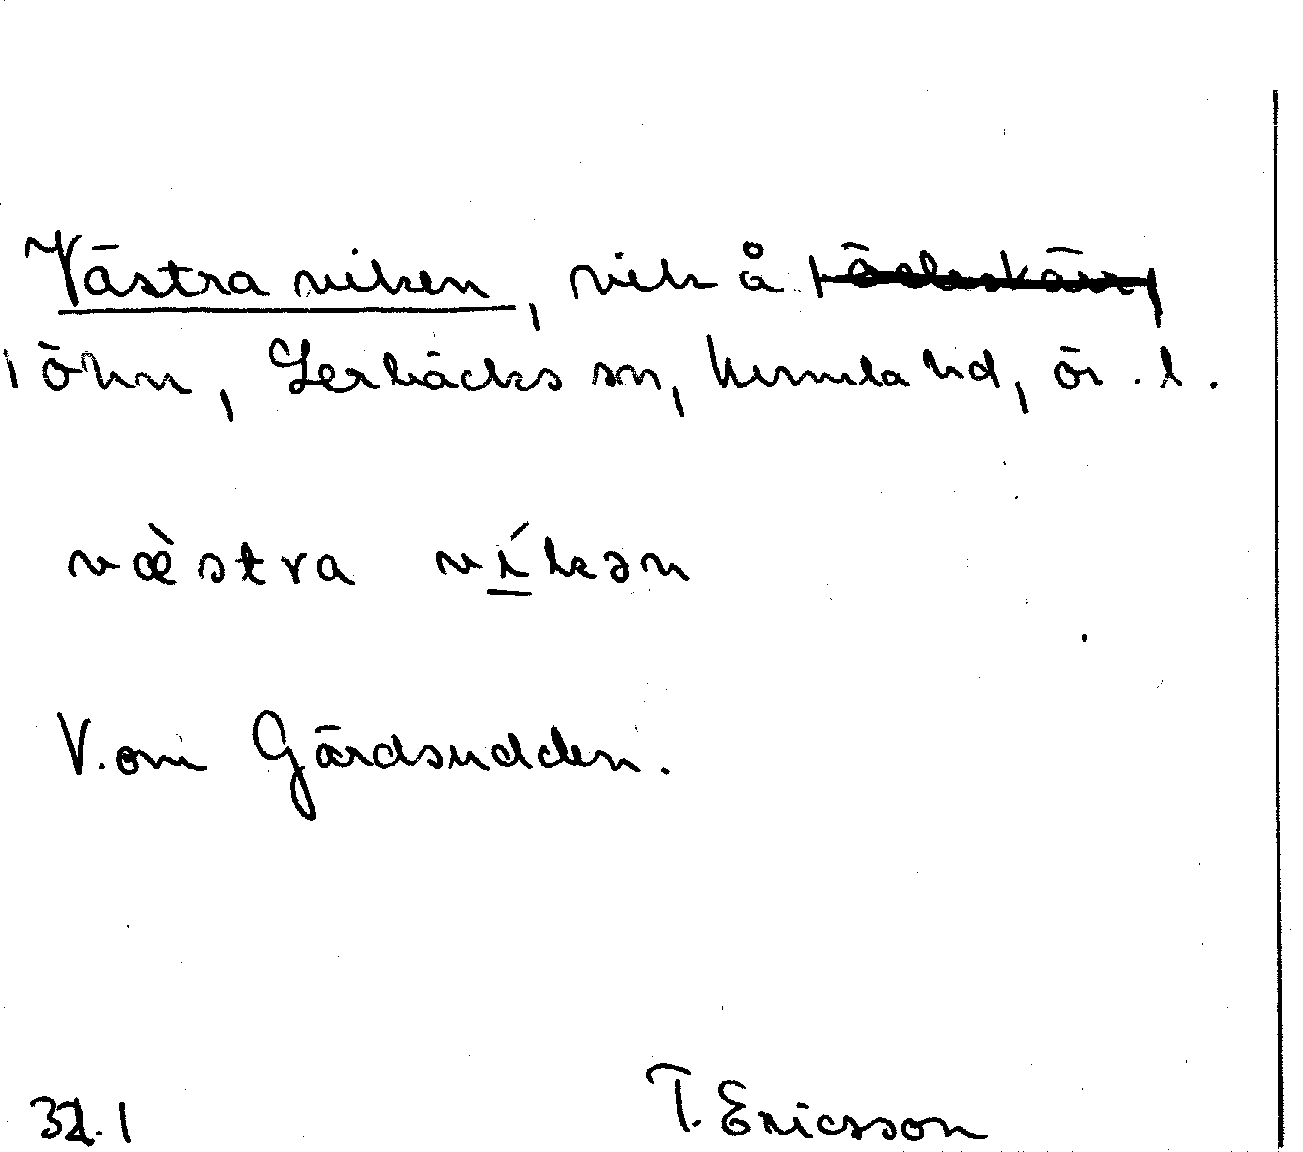 Västra viken, vik å
Löhn, Lerbäcks sn, Kumla hd, ör. l.
væ̀stra ví̱kən
V. om Gårdsudden.
T. Ericsson